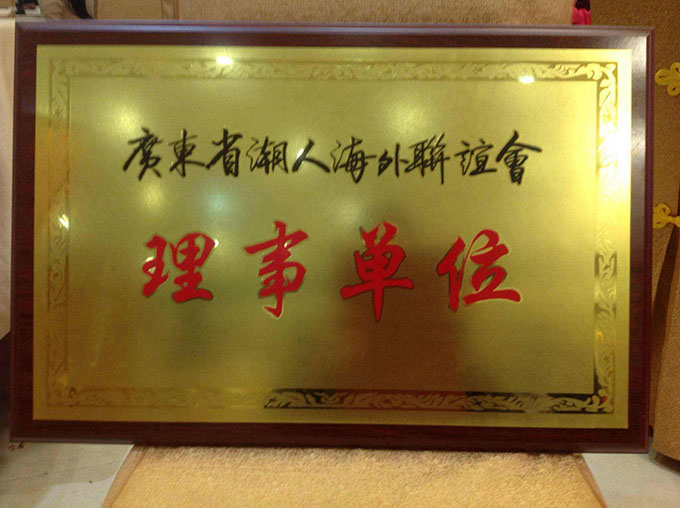 廣東省潮人海外聯誼會
理事单位